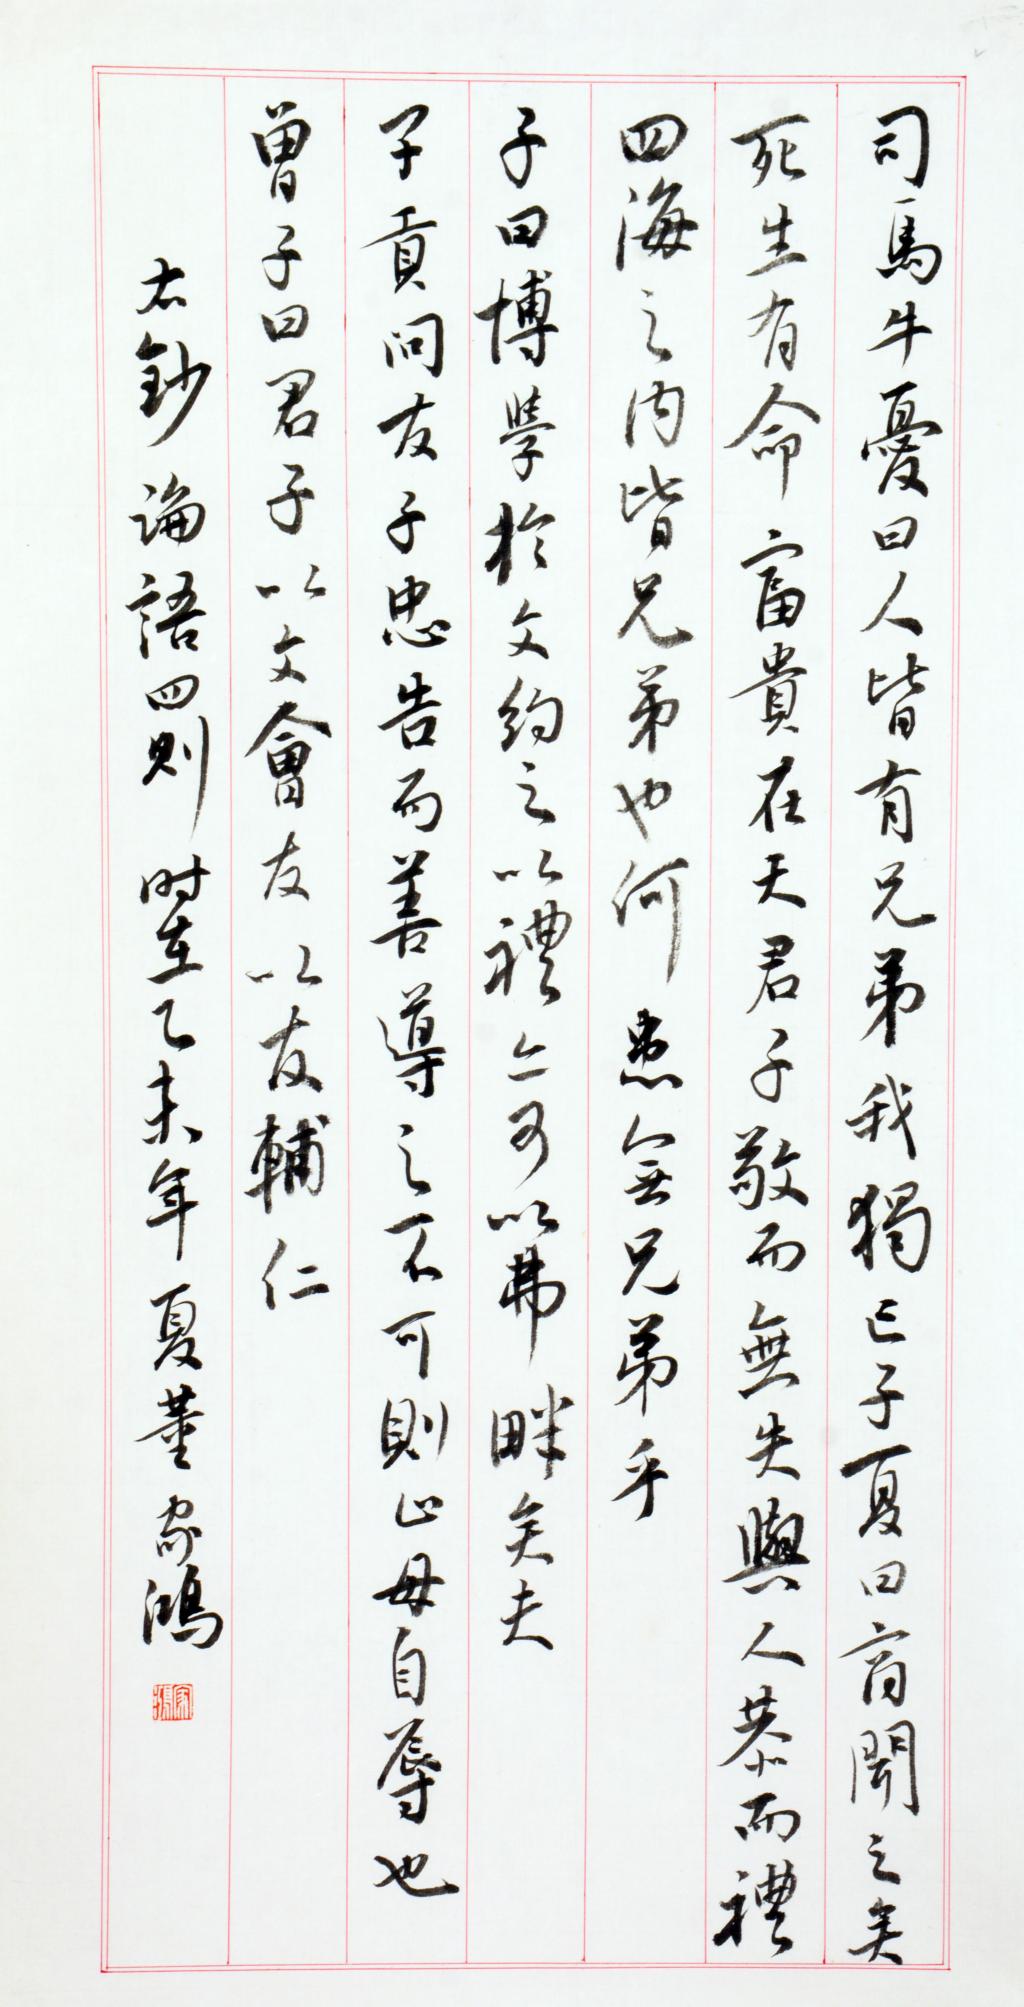 司馬牛憂曰人皆有兄弟我獨亡子夏曰商聞之矣
死生有命富貴在天君子敬而無失與人恭而禮
四海之内皆兄弟也何患無兄弟乎
子曰博學於文約之以禮亦可以弗畔矣夫
子貢問友子忠告而善導之不可則止毋自辱也
曾子曰君子以文會友以友輔仁
右鈔論語四則時在乙未年夏董家鴻
家鴻